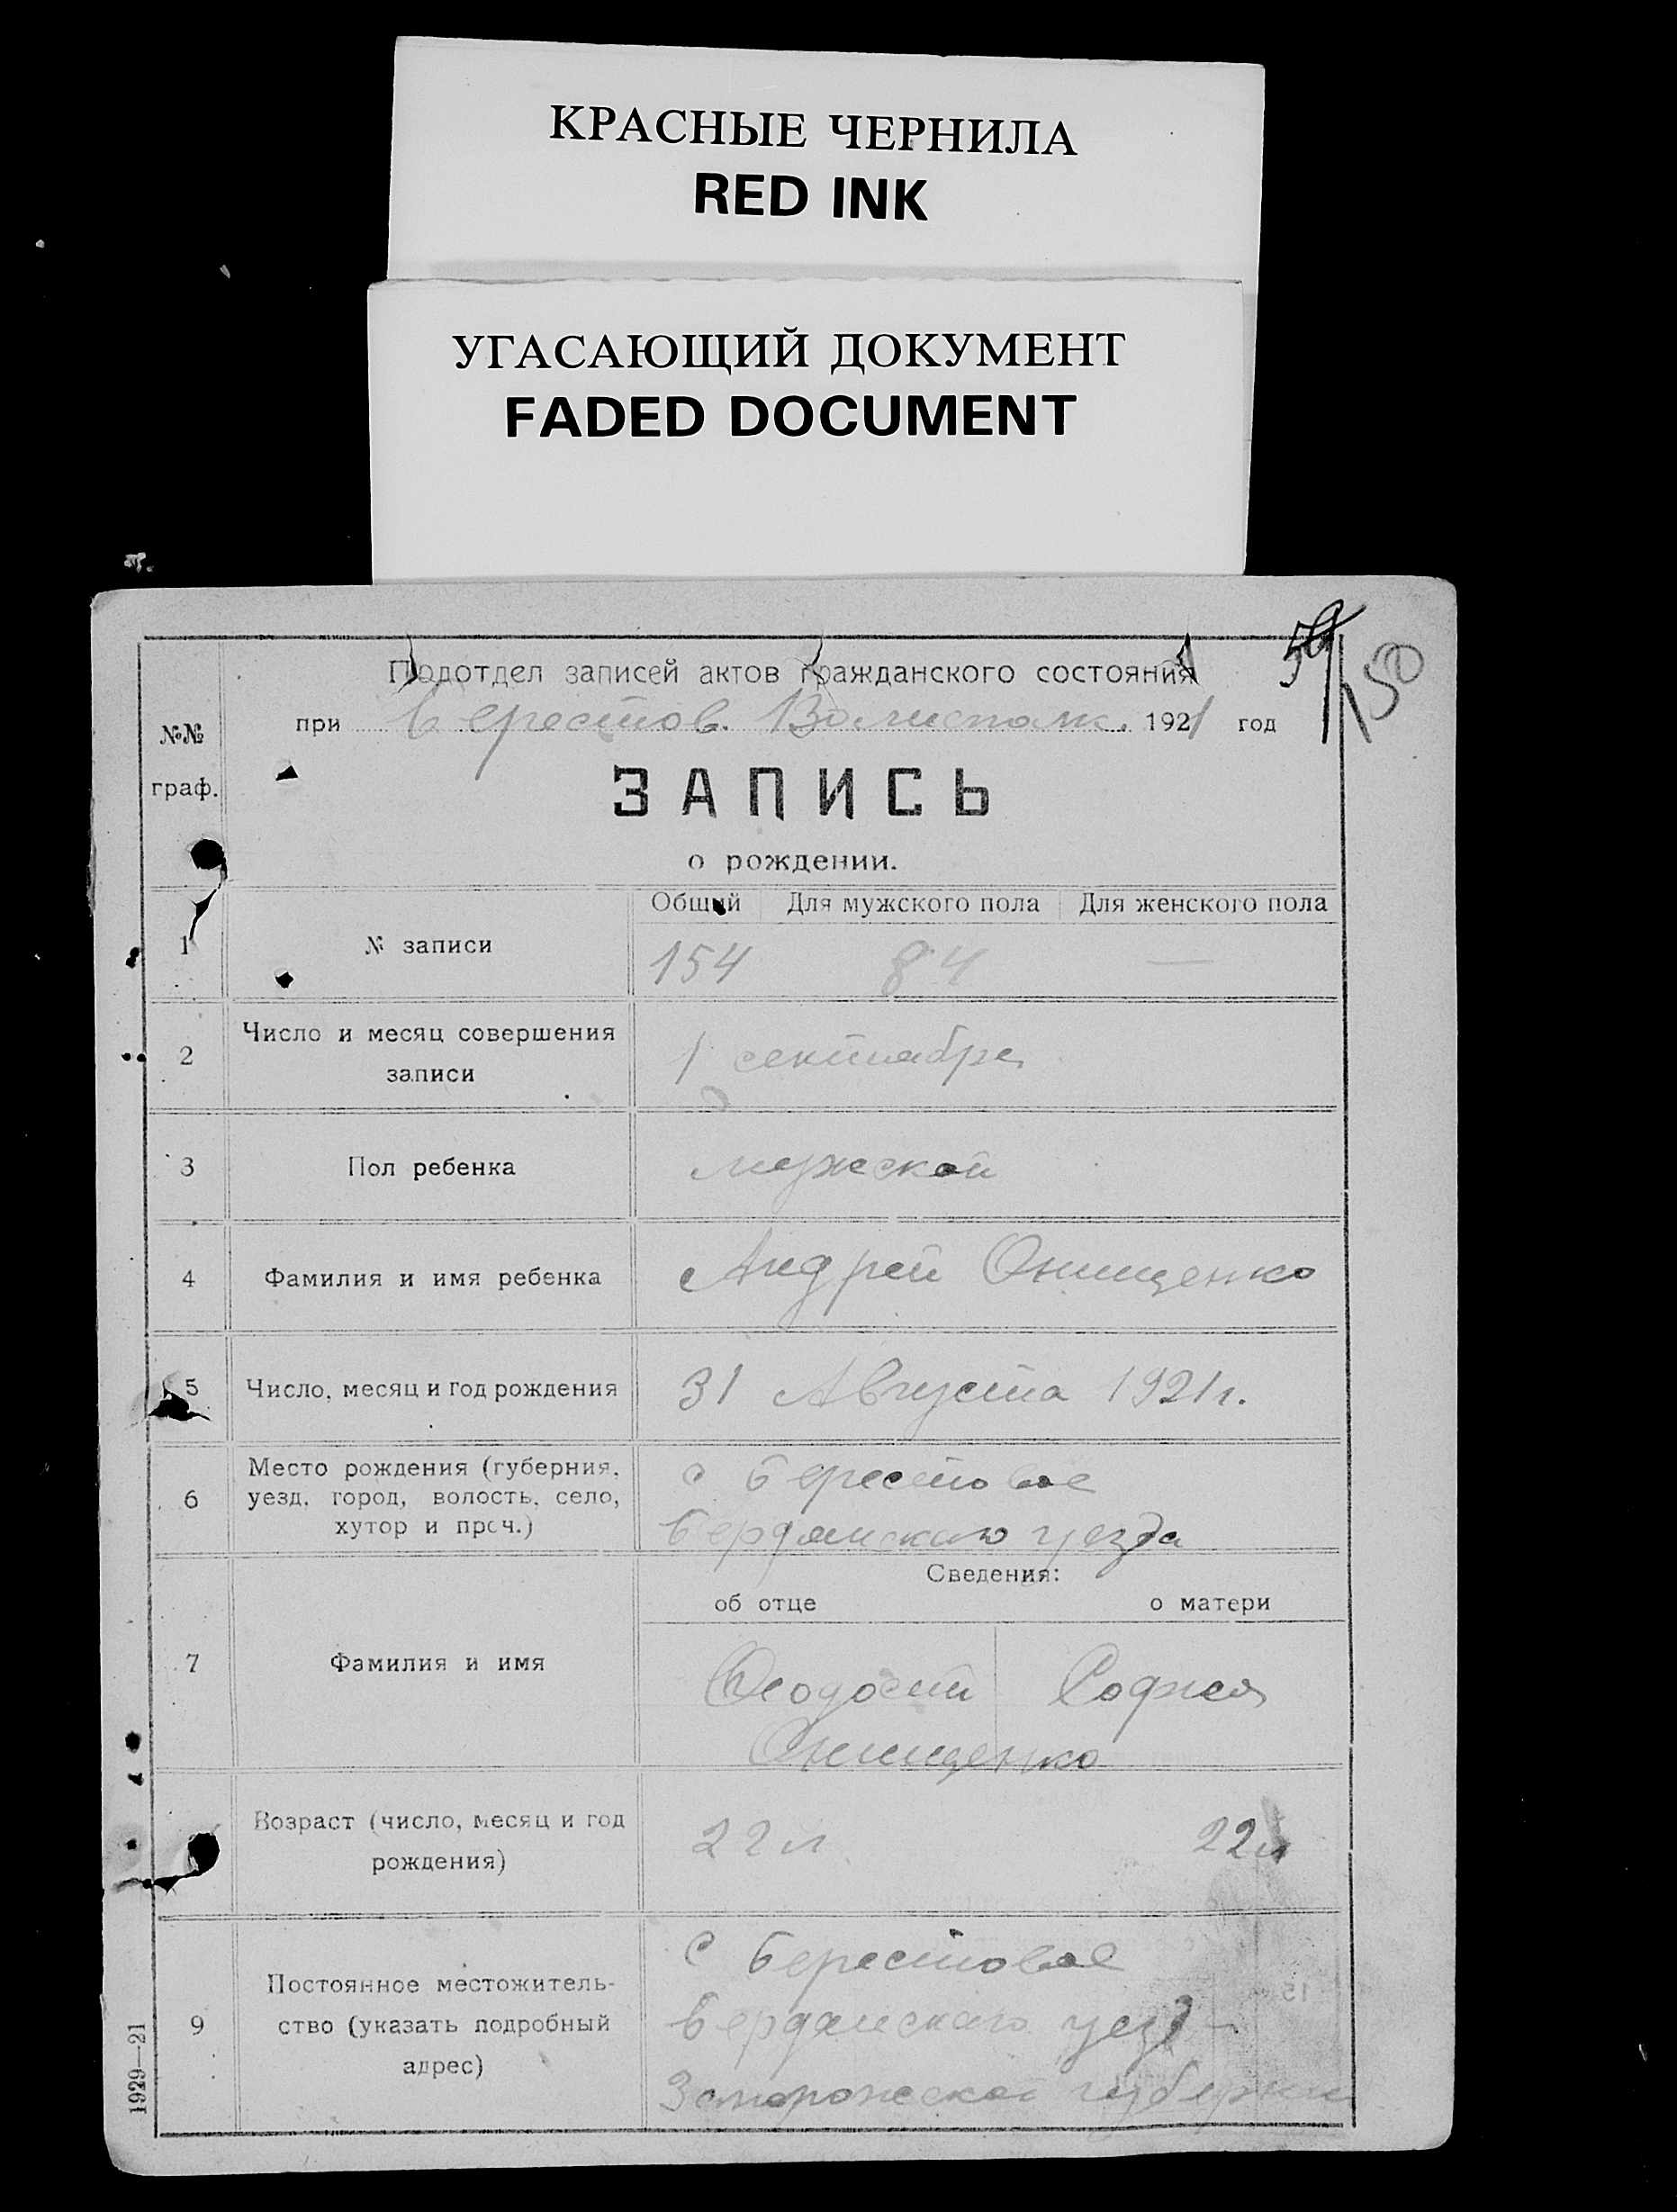 КРАСНЫЕ ЧЕРНИЛА
RED INK
УГАСАЮЩИЙ ДОКУМЕНТ
FADED DOCUMENT
59
150
Подотдел записей актов гражданского состояния
при Берестов. Волисполк. 1921 год
№№
граф.
ЗАПИСЬ
о рождении.
Общий Для мужского пола Для женского пола
1 № записи 154 84 —
2 Число и месяц совершения
записи
1 сентября
3 Пол ребенка мужской
4 Фамилия и имя ребенка Андрей Онищенко
5 Число, месяц и год рождения 31 Августа 1921 г.
6 Место рождения (губерния,
уезд, город, волость, село,
хутор и проч.)
с Берестовое
Бердянскаго уезда
Сведения:
об отце о матери
7 Фамилия и имя
Феодосий София
Онищенко
Возраст (число, месяц и год
рождения)
22 л 22 л
9 Постоянное местожитель-
ство (указать подробный
адрес)
с Берестовое
Бердянскаго уезд
Запорожской губернии
1929—21